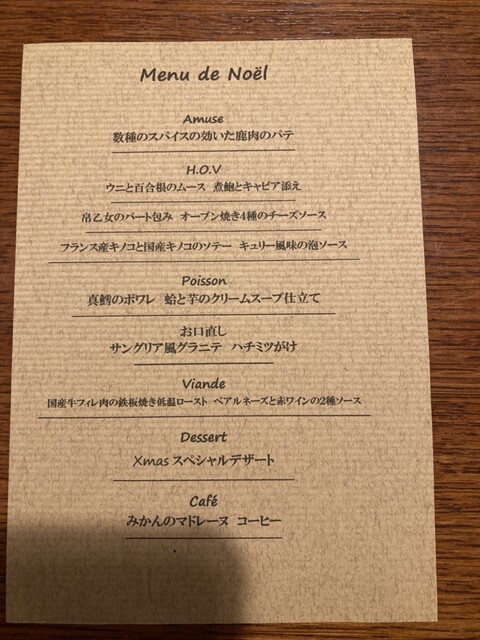 Menu de Noël
Amuse
数種のスパイスの効いた鹿肉のパテ
H.O.V
ウニと百合根のムース 煮鮑とキャビア添え
帛乙女のパート包み オーブン焼き4種のチーズソース
フランス産キノコと国産キノコのソテー キュリー風味の泡ソース
Poisson
真鱈のポワレ 蛤と芋のクリームスープ仕立て
お口直し
サングリア風グラニテ ハチミツがけ
Viande
国産牛フィレ肉の鉄板焼き低温ロースト ベアルネーズと赤ワインの2種ソース
Dessert
Xmas スペシャルデザート
Café
みかんのマドレーヌ コーヒー